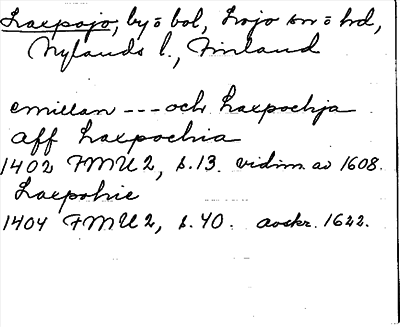 Laxpojo, by o bol, Lojo sn o hd,
Nylands l., Finland
emillan --- och Laxpochja
aff Laxpochia
1402 FMU 2, s. 13. vidim. av 1608.
Laxpohie
1404 FMU 2, s. 40. avskr. 1622.